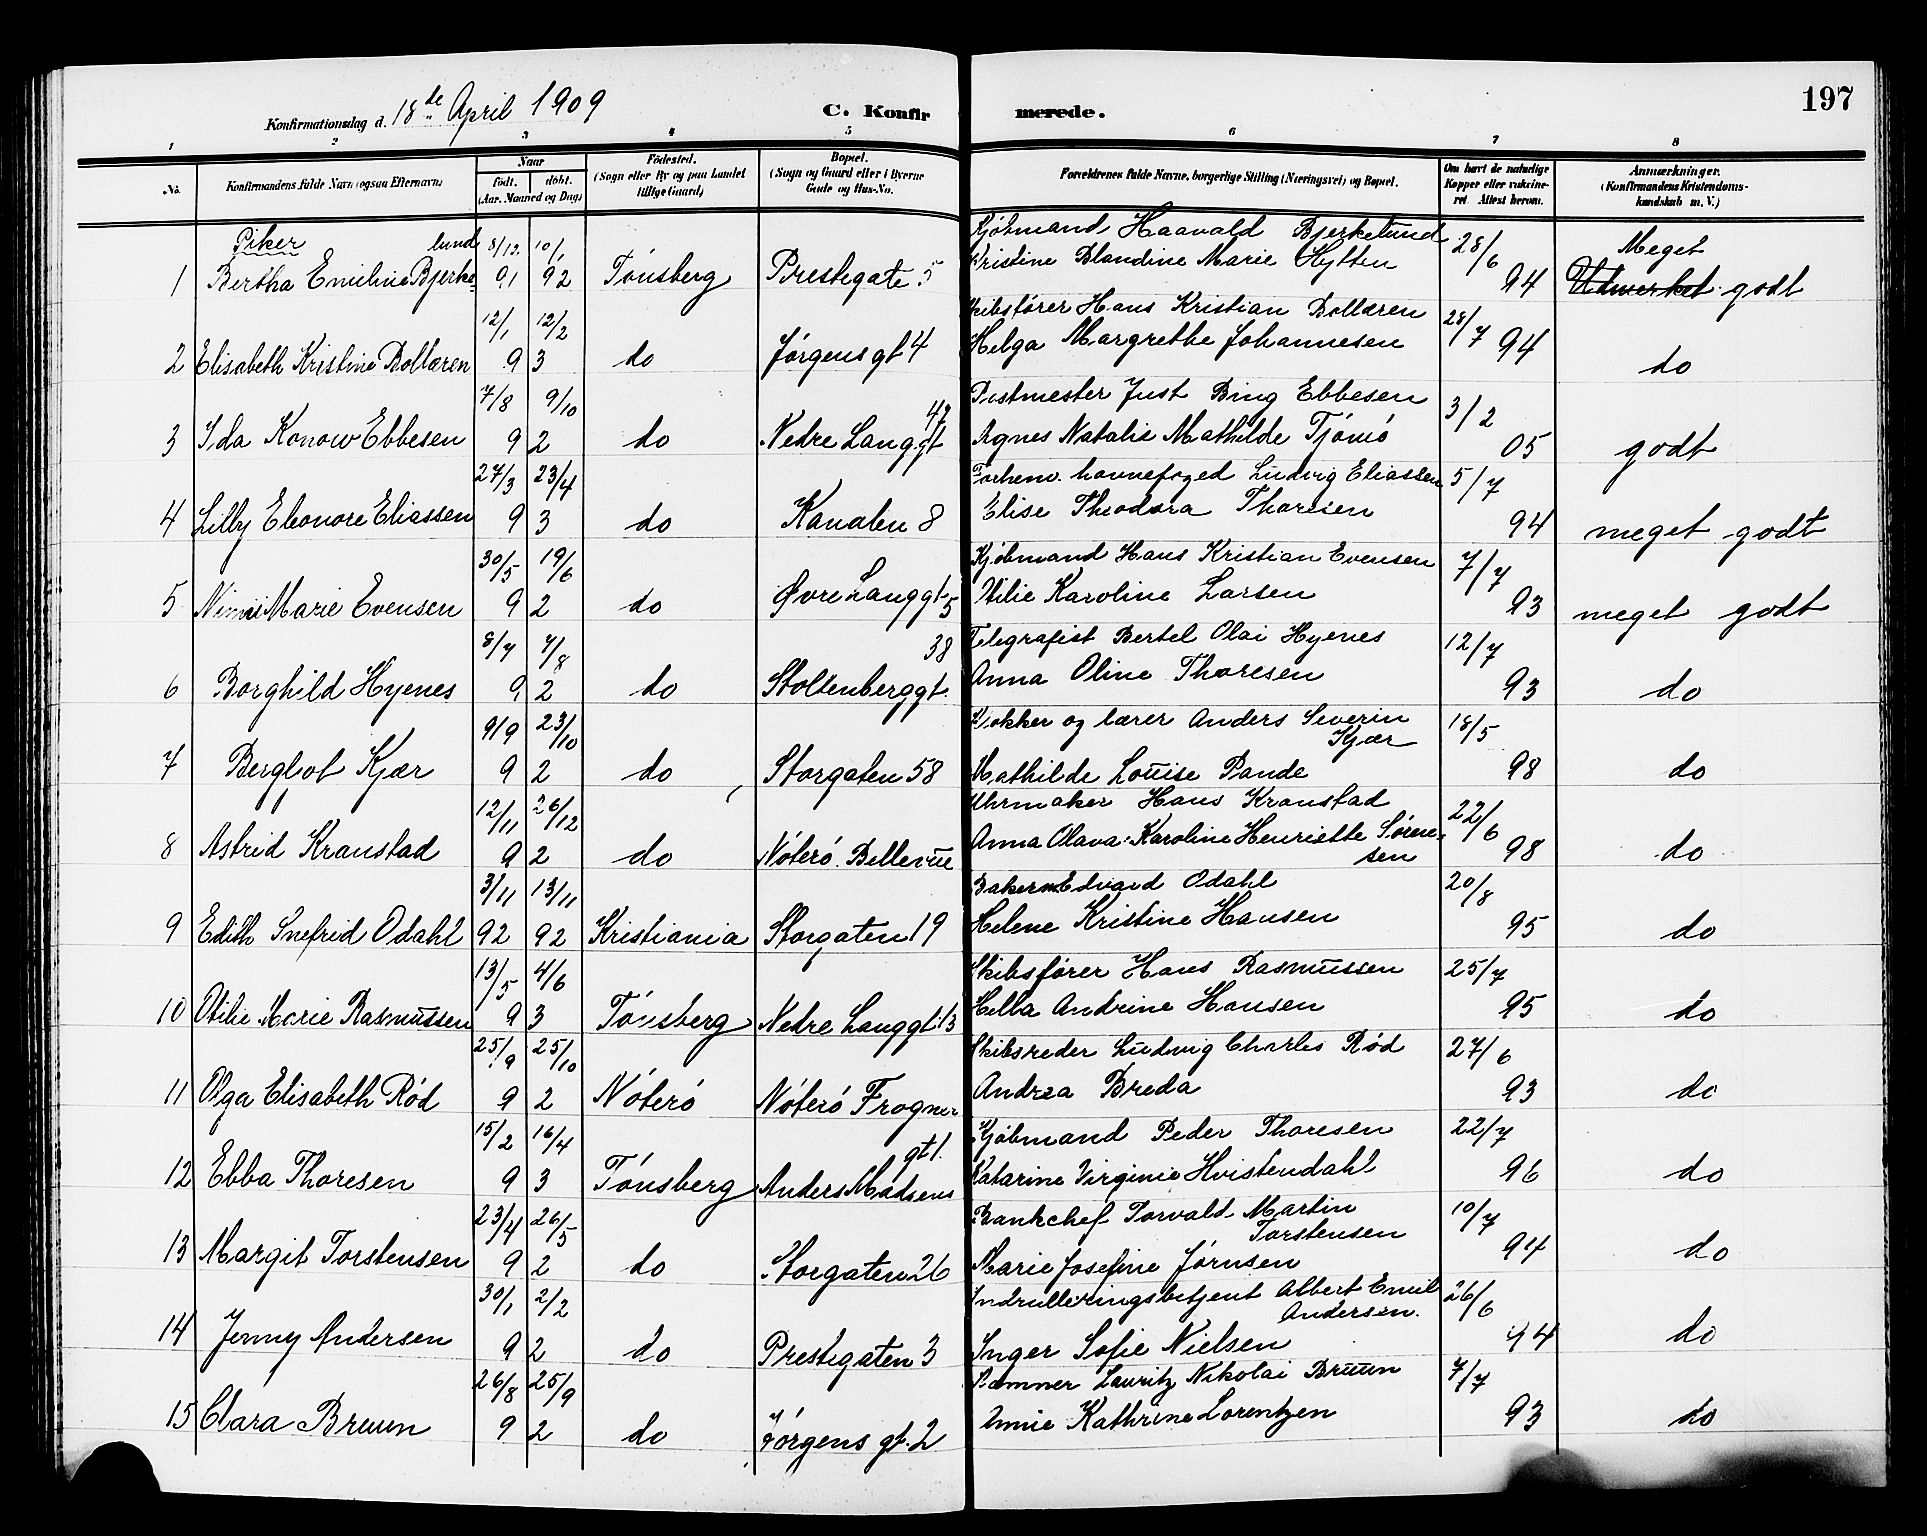 197
Konfirmationsdag d. 18de April 1909 C. Konfirmerede.
1 2 3 4 5 6 7 8
No. Konfirmandens fulde Navn (ogsaa Efternavn) Naar født. døbt. (Aar, Maaned og Dag) Fødested. (Sogn eller By og paa Landet tillige Gaard) Bopæl. (Sogn og Gaard eller i Byerne Gade og Hus-No. Forældrenes fulde Navne, borgerlige Stilling (Næringsvei) og Bopæl. Om havt de naturlige Kopper eller vaksineret Attest herom. Anmærkninger. (Konfirmandens Kristendomskundskab m. V.)
Piker
lund 8/12. 10/1 Kjøbmand Haavald Bjerkelund 28/6 Meget
1 Bertha Emiline Bjerke- 91 92 Tønsberg Prestegate 5 Kristine Blandine Marie Hytten 94 Udmerket godt
12/1 12/2 Skibsfører Hans Kristian Bollæren 28/7
2 Elisabeth Kristine Bollæren 9 3 do Jørgensgt 4 Helga Margrethe Johannesen 94 do
7/8 9/10 42 Postmester Just Bing Ebbesen 3/2
3 Ida Konow Ebbesen 9 2 do Nedre Langgt Agnes Natalie Mathilde Tjømø 05 godt
27/3 23/4 Forhenv. havnefoged Ludvig Eliassen 5/7
4 Lilly Eleonore Eliassen 9 3 do Kanalen 8 Elise Theodora Thoresen 94 meget godt
30/5 19/6 Kjøbmand Hans Kristian Evensen 7/7
5 Marie Evensen 9 2 do Øvre Langgt 5 Otilie Karoline Larsen 93 meget godt
8/7 7/8 38 Telegrafist Bertel Olai Hyenes 12/7
6 Borghild Hyenes 9 2 do Stoltenberggt. Anna Oline Thoresen 93 do
9/9 23/10 Klokker og lærer Anders Severin Kjær 18/5
7 Bergljot Kjær 9 2 do Storgaten 58 Mathilde Louise Pande 98 do
12/11 26/12 Uhrmaker Hans Kranstad 22/6
8 Astrid Kranstad 9 2 do Nøterø Bellevue Anna Olava Karoline Henriette Sørensen 98 do
3/11 13/11 Bakerm. Edvard Odahl 20/8
9 Edith Snefrid Odahl 92 92 Kristiania Storgaten 19 Helene Kristine Hansen 95 do
13/5 4/6 Skibsfører Hans Rasmussen 25/7
10 Otilie Marie Rasmussen 9 3 Tønsberg Nedre Langgt 13 Hella Andrine Hansen 95 do
25/9 25/10 Skibsreder Ludvig Charles Rød 27/6
11 Olga Elisabeth Rød 9 2 Nøterø Nøterø Frogner Andrea Breda 93 do
15/2 16/4 gt 1. Kjøbmand Peder Thoresen 22/7
12 Ebba Thoresen 9 3 Tønsberg Anders Madsens Katarine Virginie Hvistendahl 96 do
23/4 26/5 Bankchef Torvald Martin Torstensen 10/7
13 Margit Torstensen 9 2 do Storgaten 26 Marie Josefine Jørnsen 94 do
30/1 2/2 Indrulleringsbetjent Albert Emil Andersen. 26/6
14 Jenny Andersen 9 2 do Prestegaten 3 Inger Sofie Nielsen 94 do
26/8 25/9 Lauritz Nikolai Bruun 7/7
15 Clara Bruun 9 2 do Jørgens gt. 2 Annie Kathrine Lorentzen 93 do